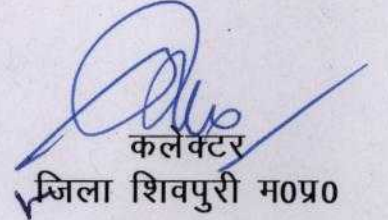 कलेक्टर
जिला शिवपुरी म0प्र0